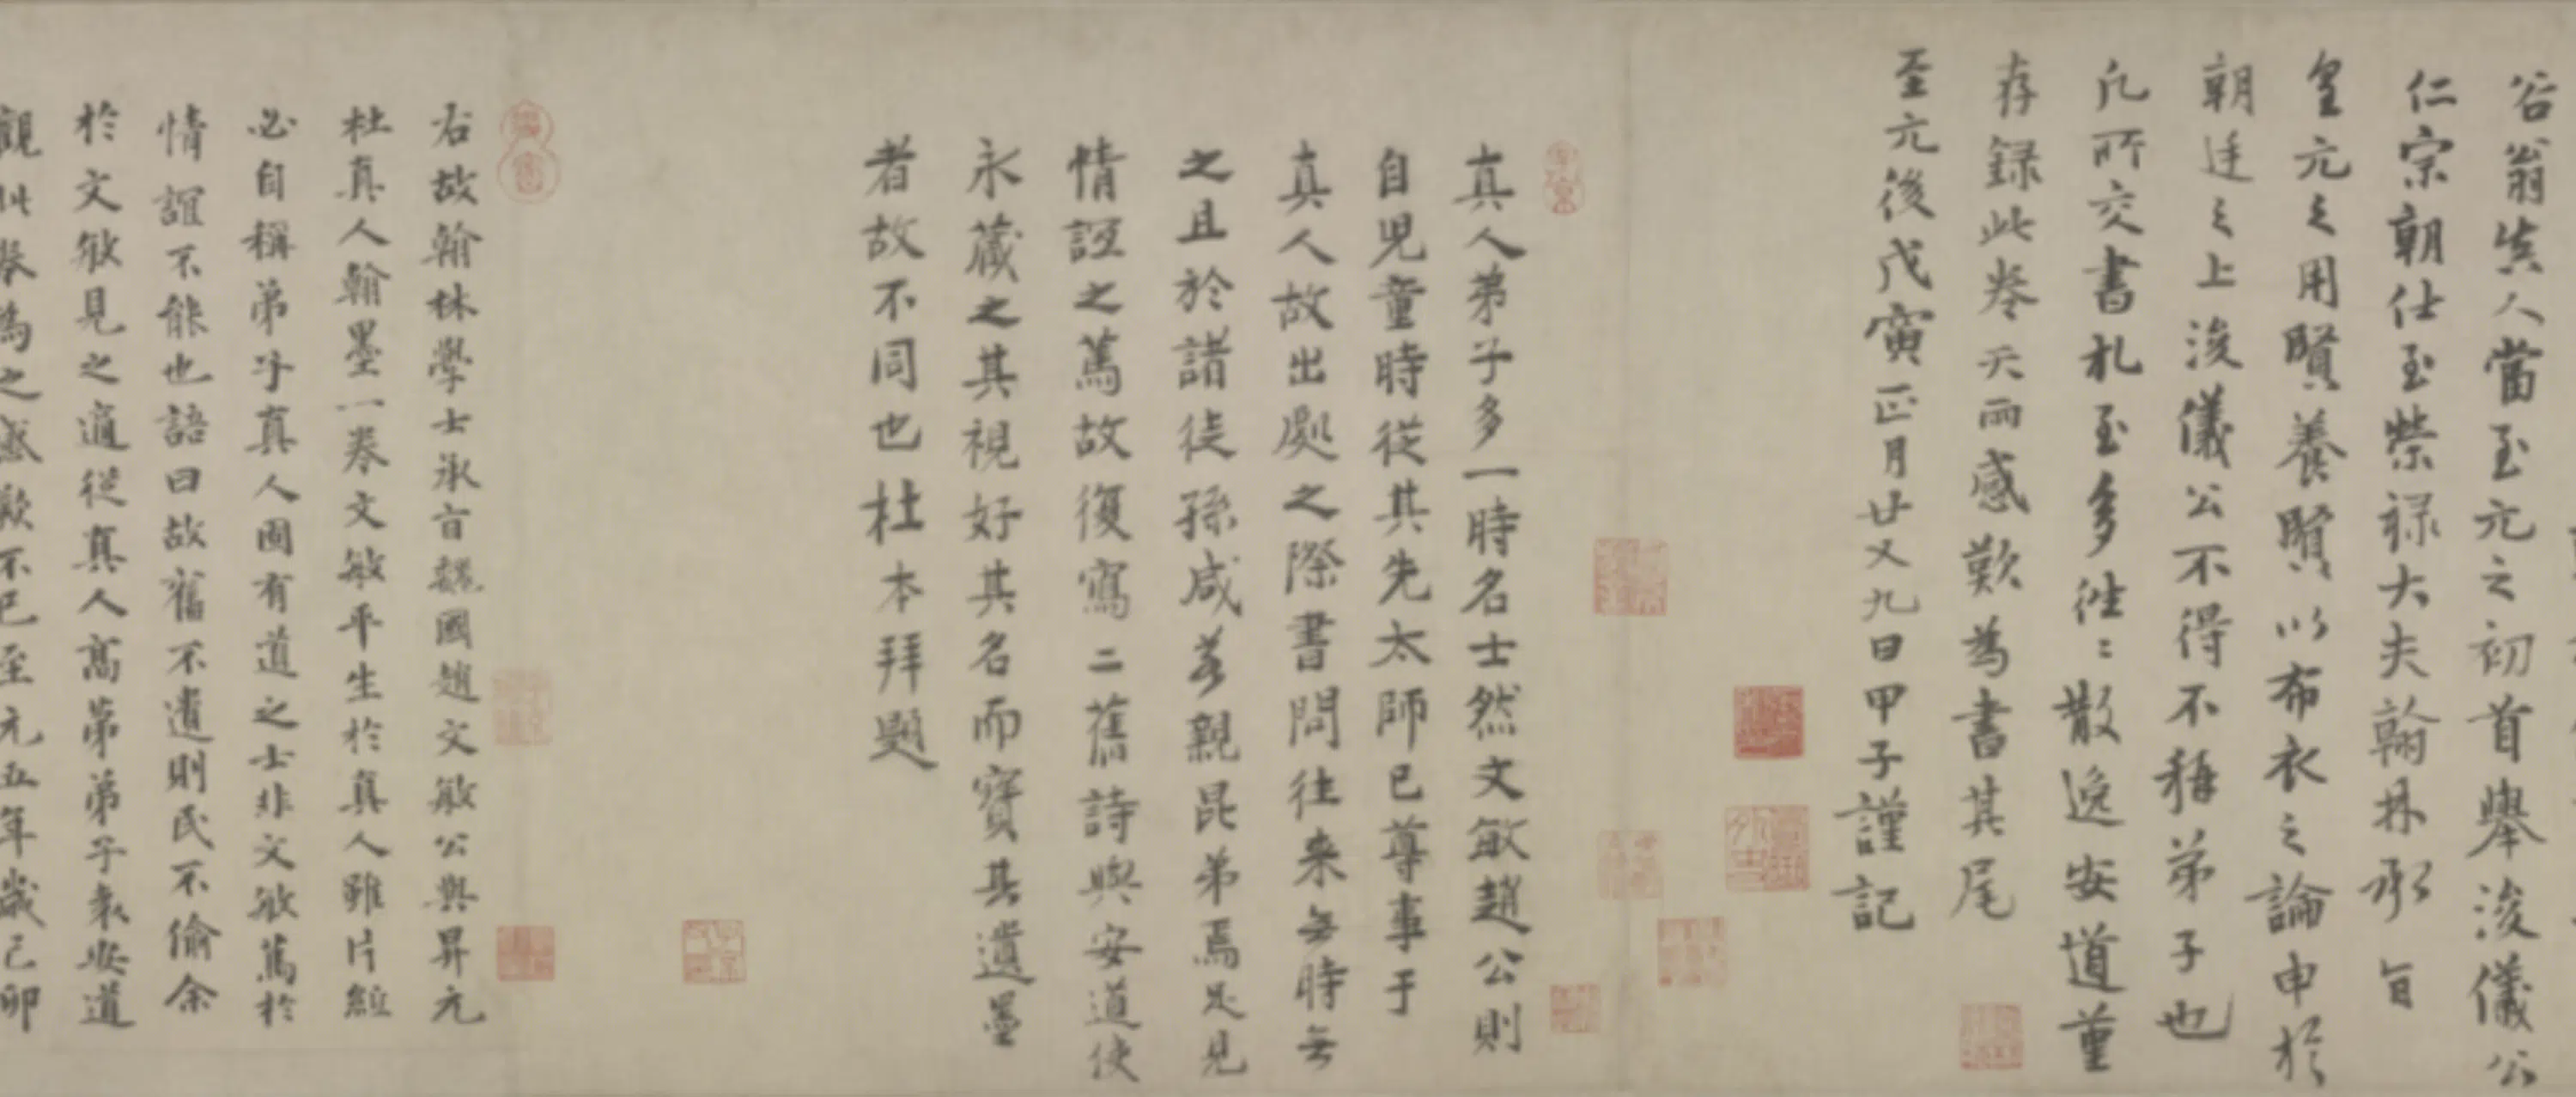 谷翁真人當至元之初首舉浚儀公
仁宗朝仕至榮祿大夫翰林承旨
皇元之用賢養賢以布衣之論申於
朝廷之上浚儀公不得不稱弟子也
凡所交書札至多往〻散逸安道重
存録此卷天而感歎為書其尾
至元後戊寅正月廿又九日甲子謹記
真人弟子多一時名士然文敏趙公則
自兒童時從其先太師已尊事于
真人故出處之際書問往来無時無
之且於諸徒孫咸若親昆弟焉足見
情誼之篤故復寫二舊詩與安道使
永藏之其視好其名而寳其遺墨
者故不同也杜本拜題
右故翰林學士承旨魏國趙文敏公與昇元
杜真人翰墨一卷文敏平生於真人雖片紙
必自稱弟子真人固有道之士非文敏篤於
情誼不能也語曰故舊不遺則民不偷余
於文敏見之適從真人髙弟弟子袁安道
觀此卷為之感歎不已至元五年歲己卯